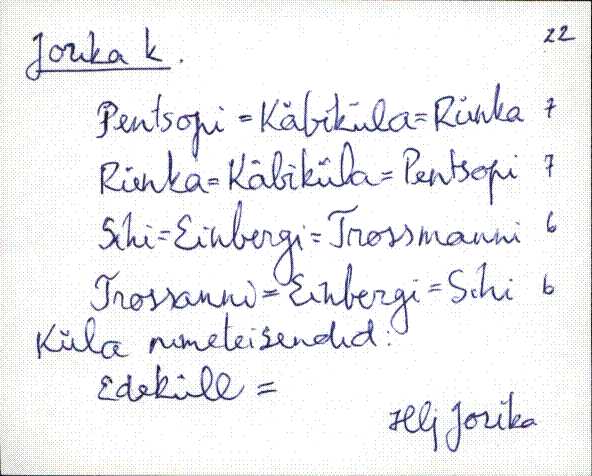 Jorika k. 22
Pentsopi = Käbiküla = Riinka 7
Riinka = Käbiküla = Pentsopi 7
Sihi = Einbergi = Trossmanni 6
Trossanni = Einbergi = Sihi 6
Küla nimeteisendid:
Edeküll =
Hlj Jorika